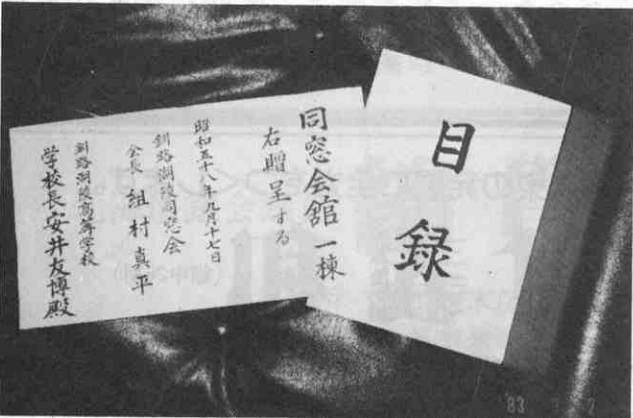 目録
同窓会舘 一棟
右贈呈する
昭和五十八年九月十七日
釧路湖陵同窓会
会長 組村真平
釧路湖陵高等学校
学校長安井友博殿